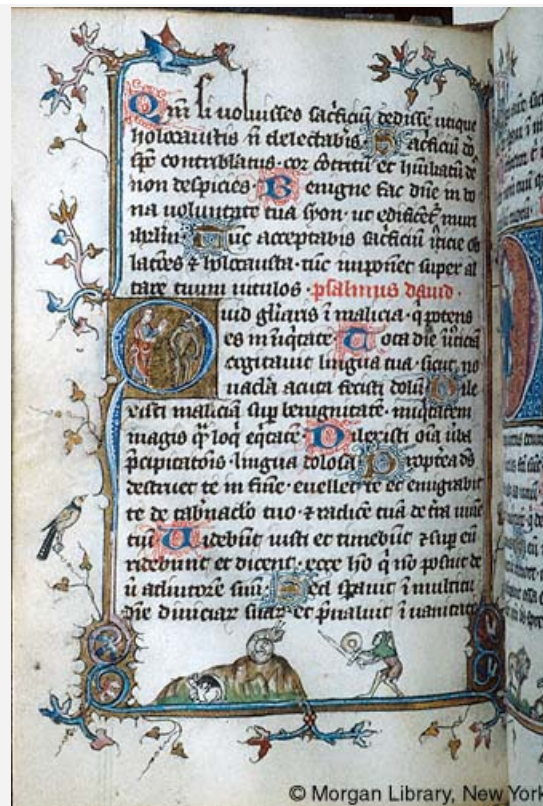 Qm̄ si voluisses sacficiū dedissē utique
holocaustis n̄ delectabis. Sacficiū do
sp̄c contribulatus. cor 9tritū et huīliatū de
non despicies. Benigne fac dn̄e in bo
na voluntate tua syon. ut edificēt muri
ihrlm̄. Tūc acceptabis sacficiū ob
lac̄oes & holocausta. tūc imponēt super al
tare tuum vitulos. psalmus david.
Quid gl̄iaris ī malicia. q̄ potens
es in īiq̄tate. Tota die
cogitavit lingua tua. sicut no
vacl̄a acuta fecisti dolū. Dile
xisti maliciā sup benignitatē. iniq̄tatem
magis q̄ loq̄ eq̄tatē. Dilexisti oīa v̄ba
p̄cipitatōis. lingua dolosa. Propt̄ea ds̄
destruet te in fine. evellet te et emigrabit
te de tabn̄aclo tuo. & radicē tuā de t̄ra vivē
tiū. Videbūt iusti et timebūt & sup eū
ridebunt et dicent. ecce hō q̄ nō posuit de
ū adiutorē suū. Sed sp̄avit ī multitu
dīe diviciar̄ suar̄. et p̄valuit ī vanitate
© Morgan Library, New York